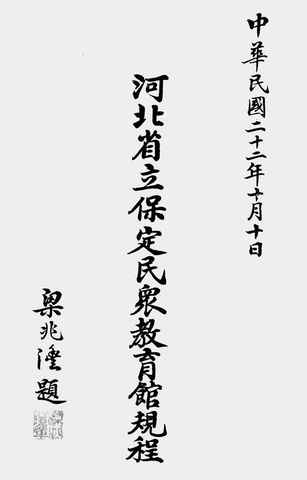 中華民國二十二年十月十日
河北省立保定民眾教育館規程
梁兆

題